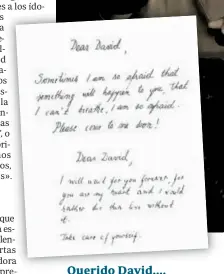 es a los ído-
Dear David,
Sometimes I am so afraid that
something will happen to you, that
I can't breathe, I am so afraid.
Please come to me soon!
Dear David,
I will wait for you forever, for
you are my heart and I would
rather die than live without
it.
Take care of yourself.
Querido David....